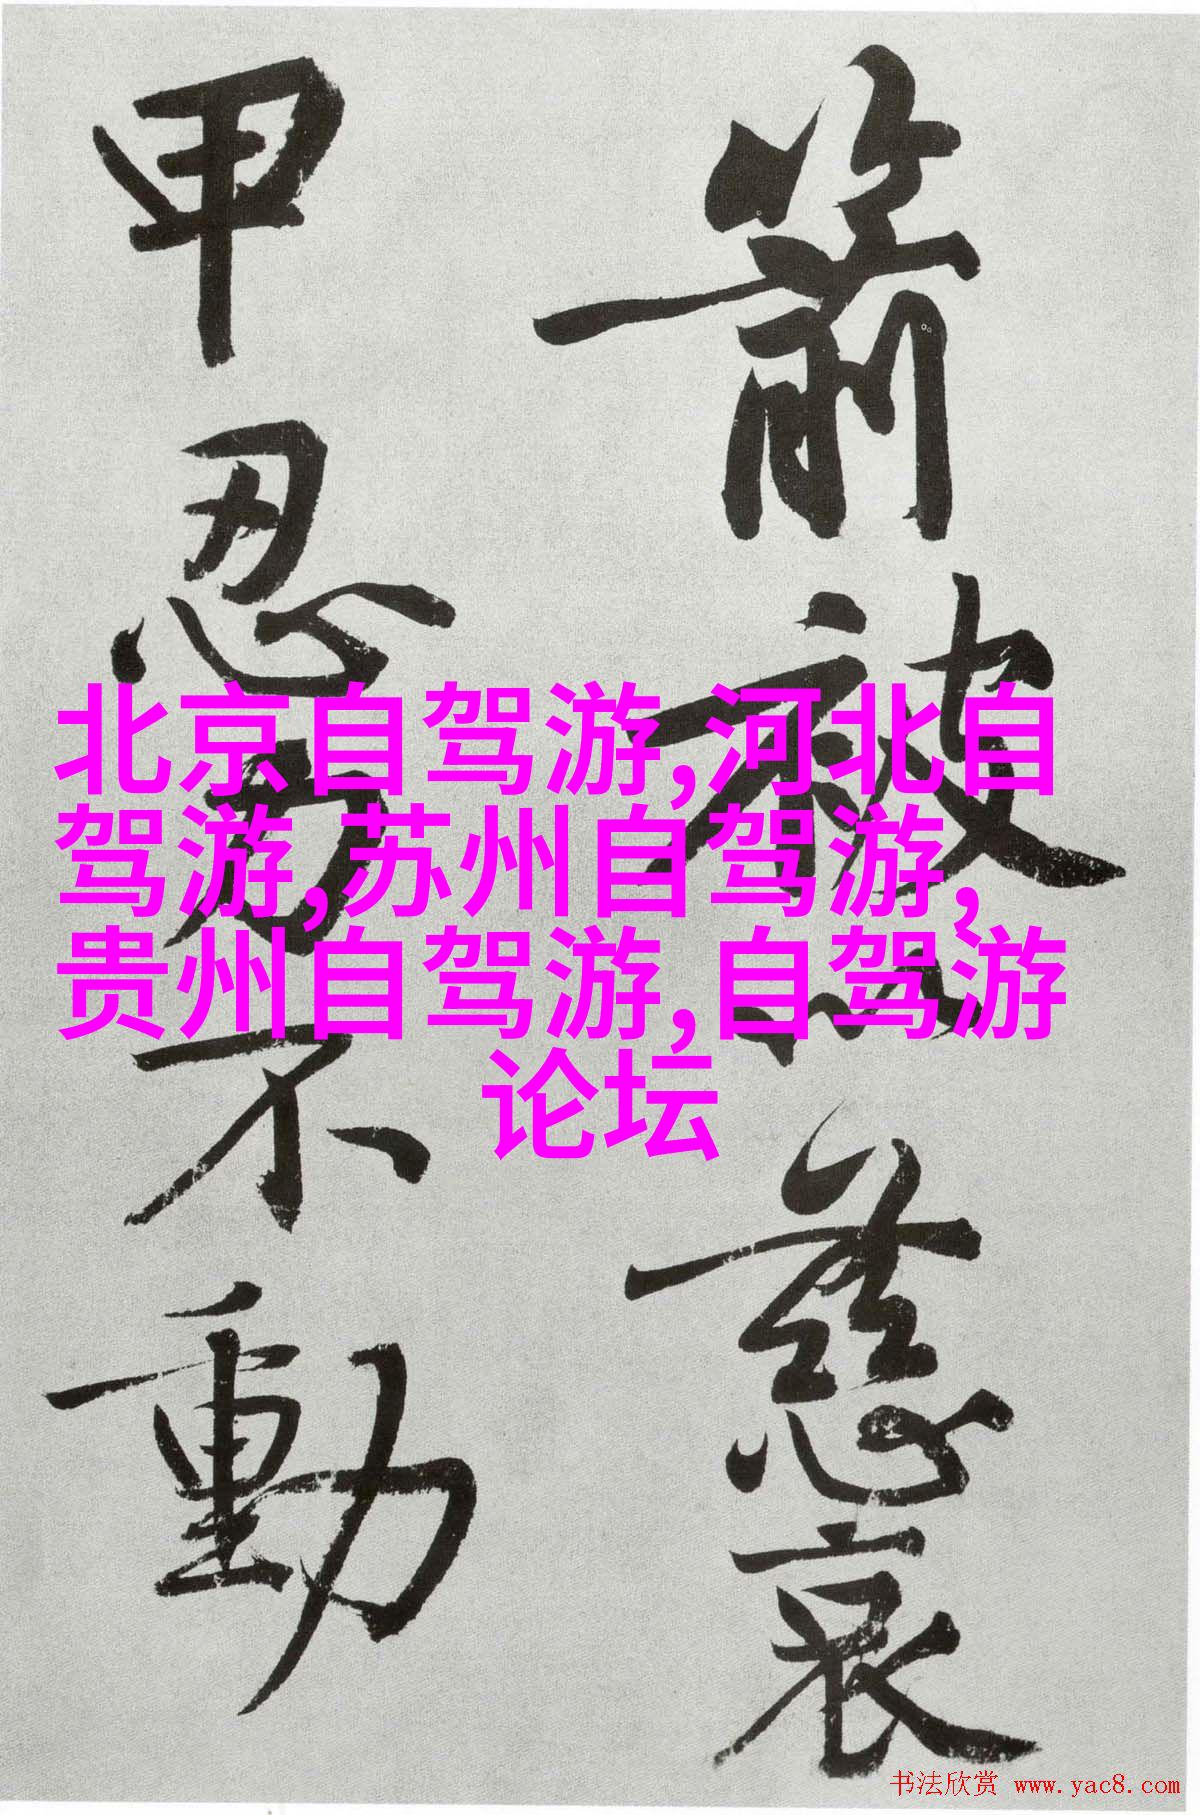 箭被慈哀
甲忍不動
北京自驾游,河北自
驾游,苏州自驾游,
贵州自驾游,自驾游
论坛
书法欣赏 www.yac8.com